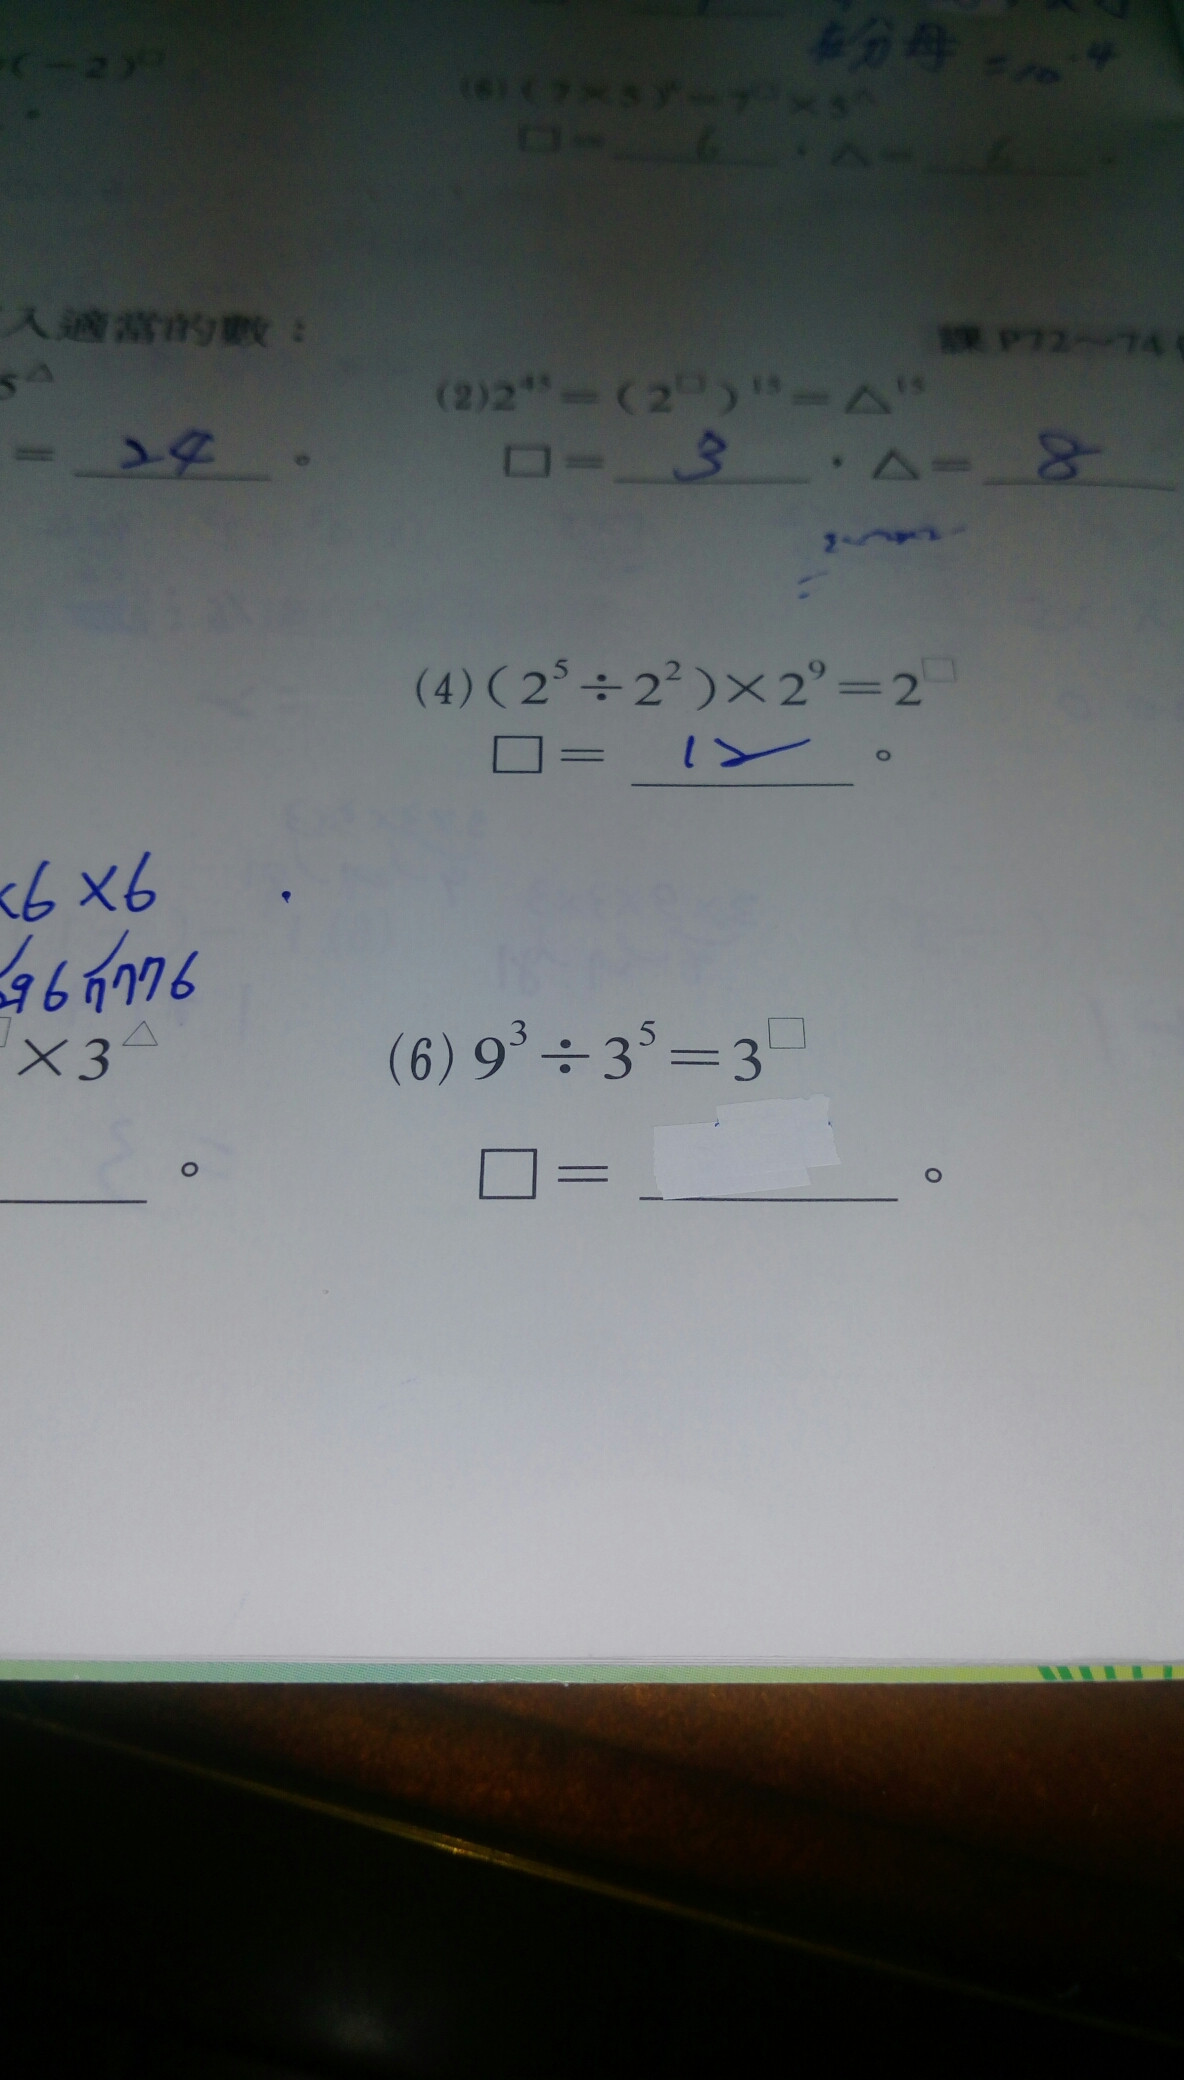 (-2)□
在分母 =10⁻⁴
□= 6 ,△= 6 。
入適當的數:
課 P72~74
5△
= 24 。
(2)2⁴⁵=(2□)¹⁵=△¹⁵
□= 3 ,△= 8
(4)(2⁵÷2²)×2⁹=2□
□= 12 。
×6×6
7776
□×3△
。
(6)9³÷3⁵=3□
□= 。